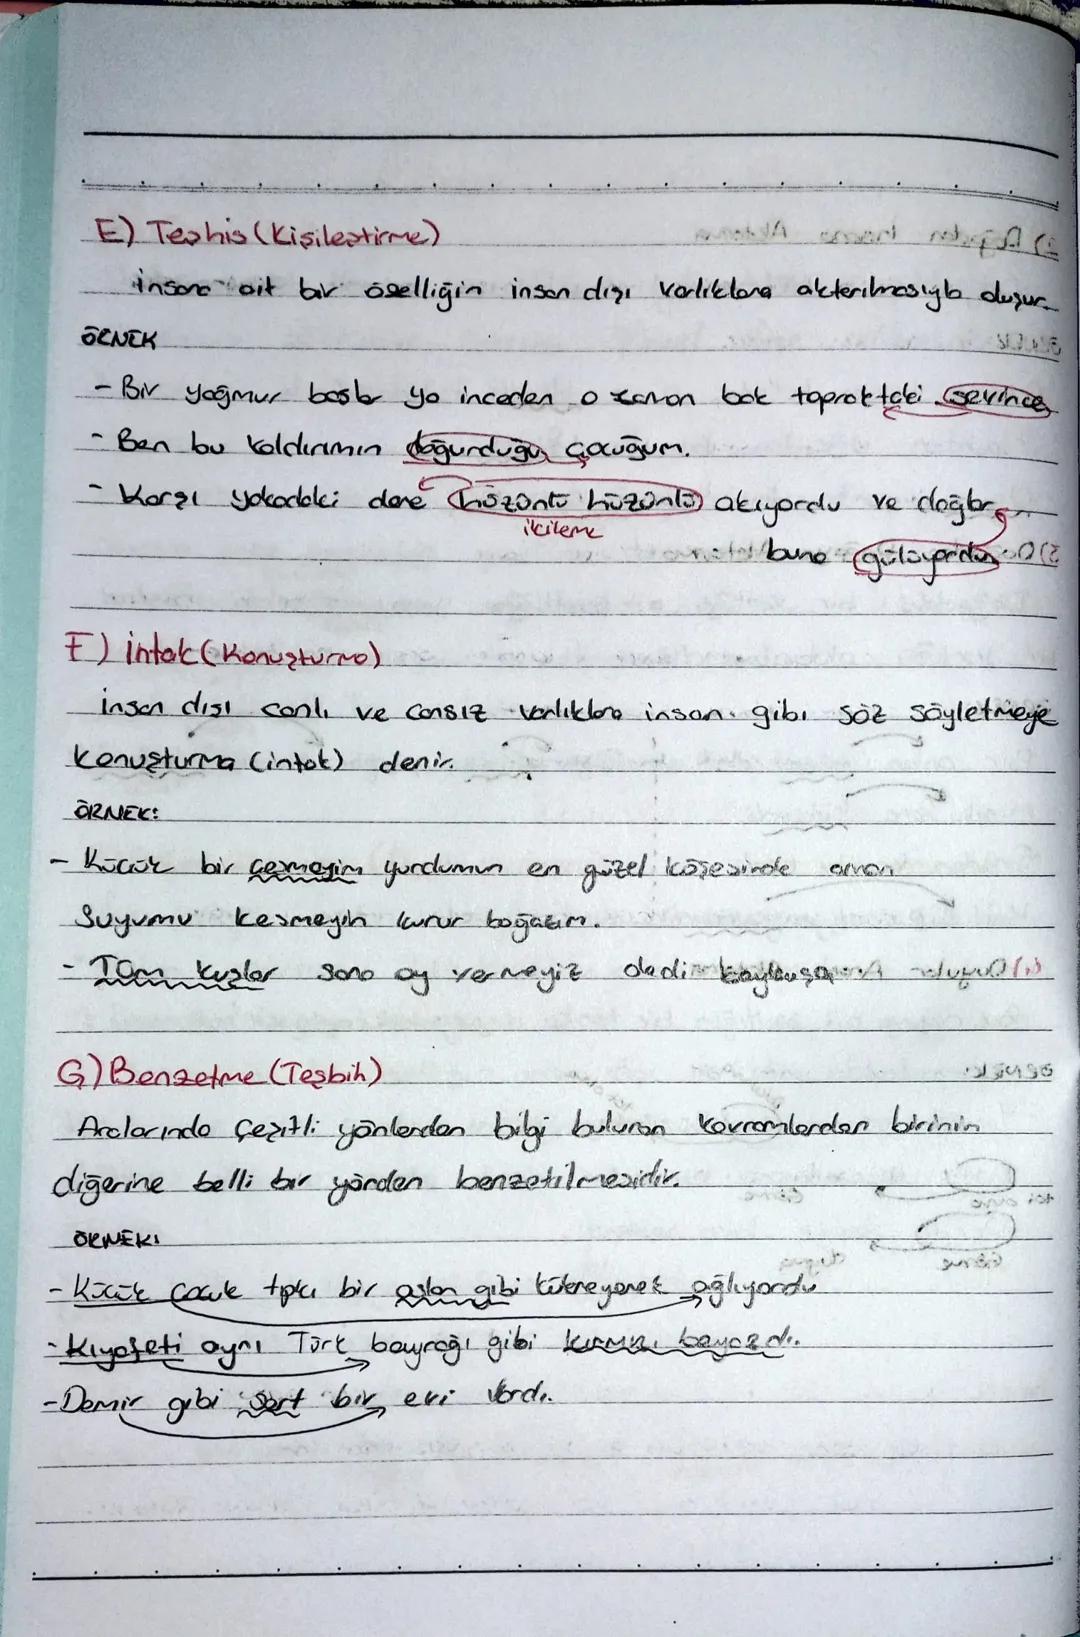 E) Teşhis (Kişileştirme)
İnsana ait bir özelliğin insan dışı varlıklara aktarılmasıyla oluşur.
ÖRNEK
- Bir yağmur başlar ya inceden o zaman bak topraktaki sevince
- Ben bu kaldırımın doğurduğu çocuğum.
- Karşı yakadaki dere hüzünlü hüzünlü akıyordu ve dağlar
ikileme
buna gülüyordu
F) İntak (Konuşturma)
İnsan dışı canlı ve cansız varlıklara insan gibi söz söyletmeye
Konuşturma (intak) denir.
ÖRNEK:
- Küçük bir çeşmeyim yurdumun en güzel köşesinde aman
Suyumu kesmeyin kurur boğazım.
- Tüm kuşlar sana oy vermeyiz dedi baykuşa
G) Benzetme (Teşbih)
Aralarında çeşitli yönlerden bilgi bulunan kavramlardan birinin
diğerine belli bir yönden benzetilmesidir.
ÖRNEK:
- Küçük çocuk tıpkı bir aslan gibi kükreyerek ağlıyordu
- Kıyafeti aynı Türk bayrağı gibi kırmızı beyazdı.
- Demir gibi sert bir evi vardı.